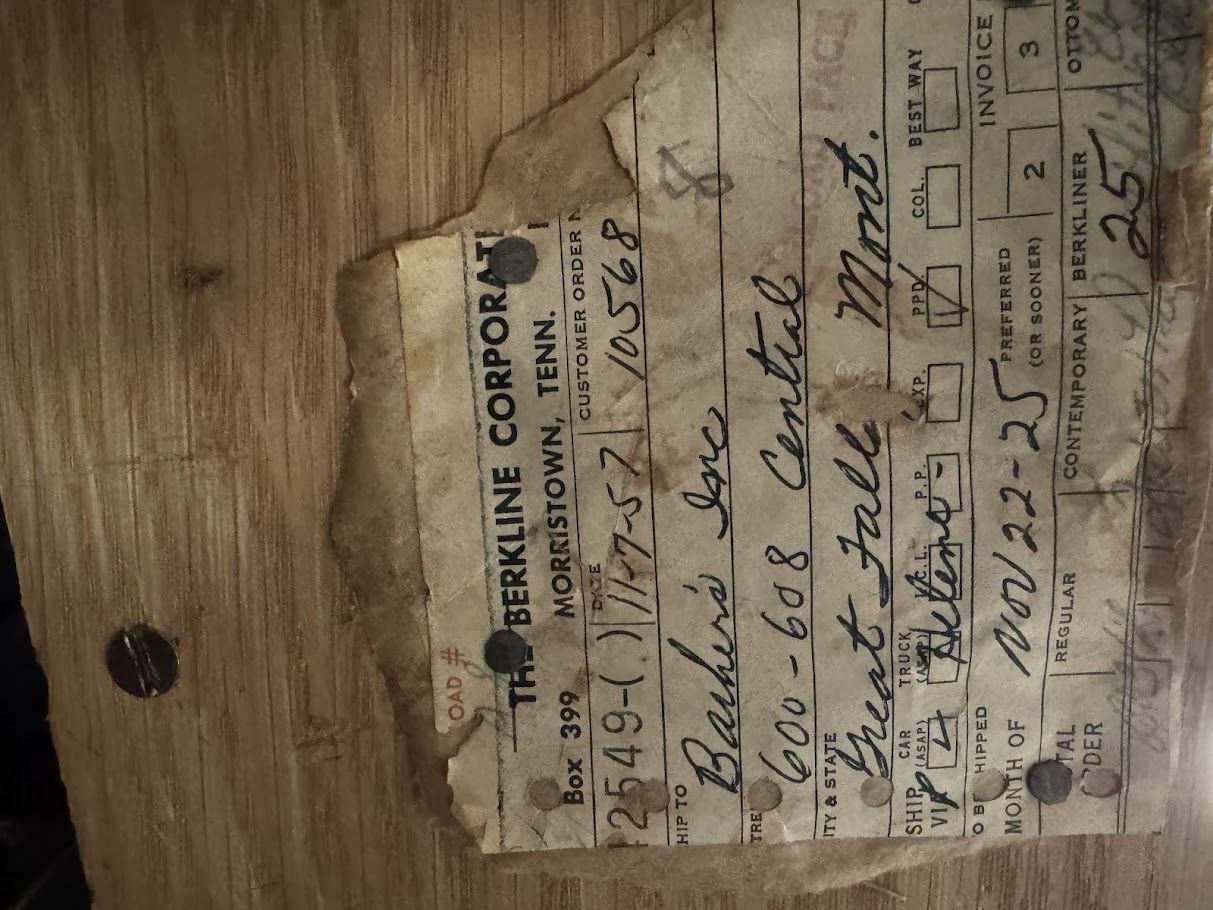 OAD #
THE BERKLINE CORPORATI
Box 399 MORRISTOWN, TENN.
DATE CUSTOMER ORDER N
2549-( ) 11-7-57 10568
HIP TO
8
Inc
TRE
600-608 Central
ITY & STATE
Great Falls Mont.
SHIP CAR TRUCK L.C.L. P.P. EXP. PPD. COL. BEST WAY
VIA (ASAP) (ASAP)
4 Helena
O BE SHIPPED PREFERRED INVOICE
MONTH OF NOV 22-25 (OR SOONER) 2 3
TAL REGULAR CONTEMPORARY BERKLINER OTTOM
RDER
25